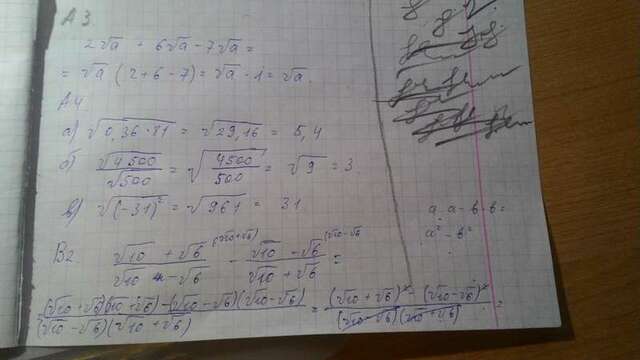 А3.
2√a + 6√a - 7√a =
= √a (2+6-7) = √a · 1 = √a.
А4
а) √(0,36·81) = √29,16 = 5,4
б) √4500/√500 = √(4500/500) = √9 = 3.
в) √(-31)² = √961 = 31
В2 (√10 + √6)/(√10 - √6) - (√10 - √6)/(√10 + √6) =
((√10 + √6)(√10 + √6) - (√10 - √6)(√10 - √6))/((√10 - √6)(√10 + √6)) = ((√10 + √6)² - (√10 - √6)²)/((√10 - √6)(√10 + √6)) =
a·a - b·b =
a² - b²